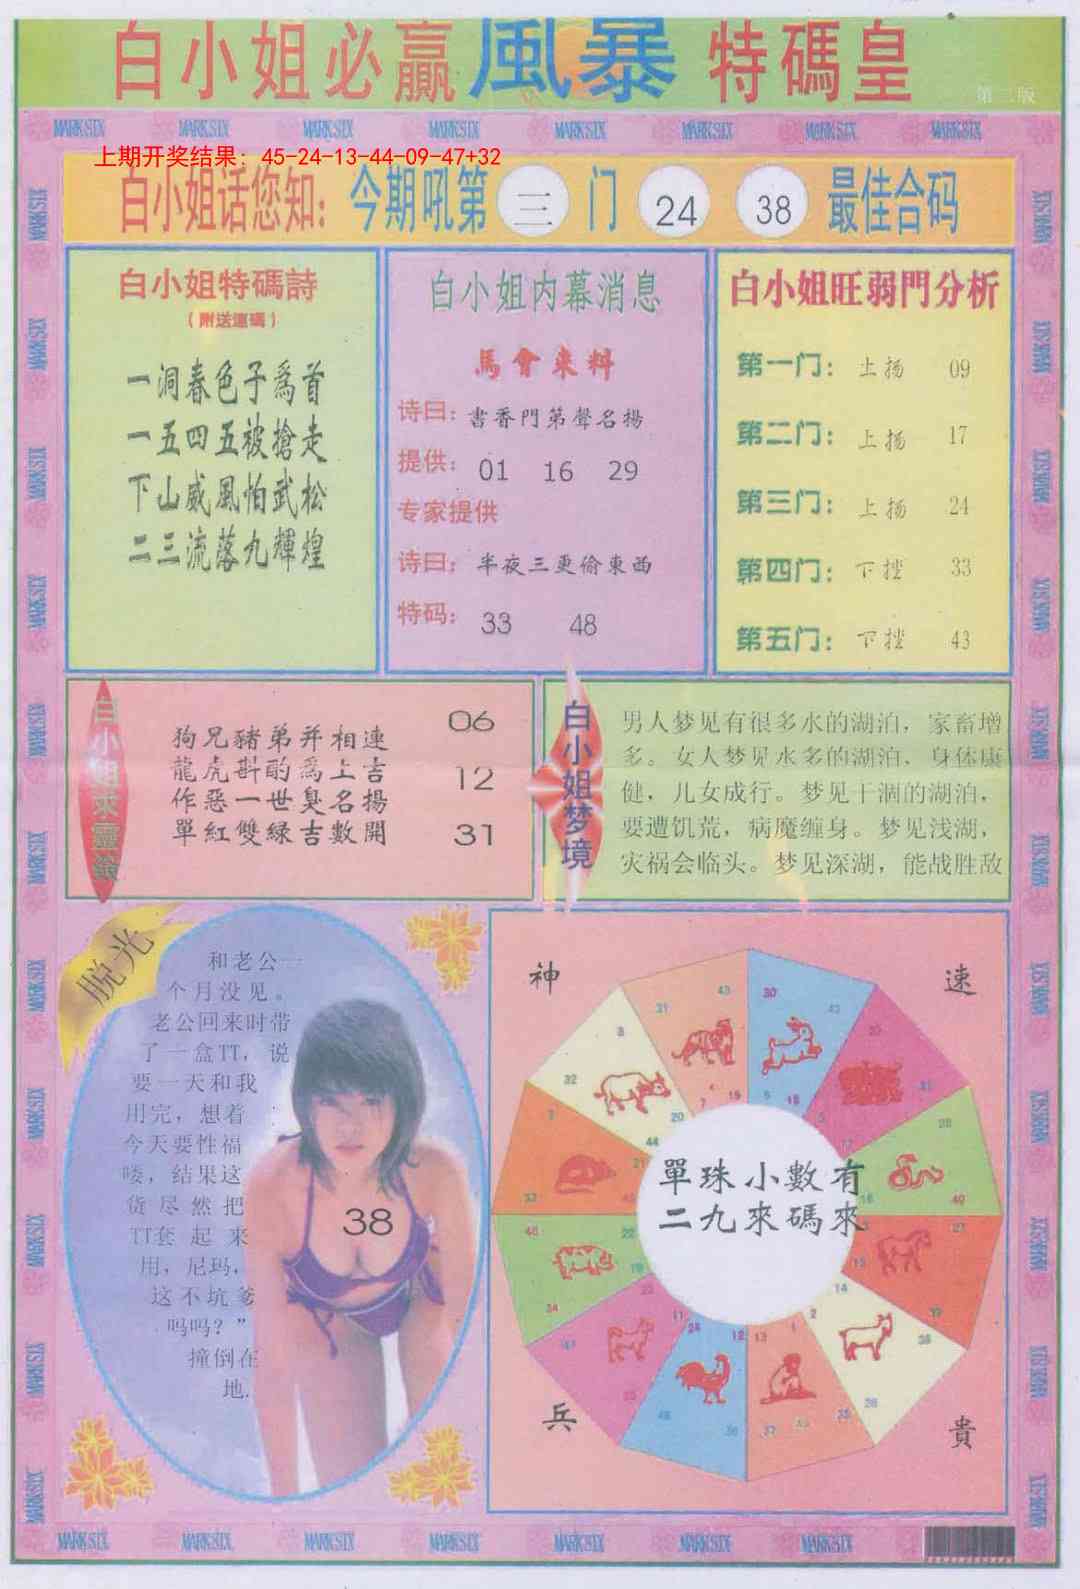 白小姐必贏風暴特碼皇
第二版
MARKSIX MARKSIX MARKSIX MARKSIX MARKSIX MARKSIX MARKSIX MARKSIX
上期开奖结果：45-24-13-44-09-47+32
白小姐话您知：今期吼第 三 门 24 38 最佳合码
白小姐特碼詩
（附送連碼）
一洞春色子爲首
一五四五被搶走
下山威風怕武松
二三流落九輝煌
白小姐内幕消息
馬會來料
诗曰：書香門第聲名揚
提供：01 16 29
专家提供
诗曰：半夜三更偷東西
特码：33 48
白小姐旺弱門分析
第一门：上扬 09
第二门：上扬 17
第三门：上扬 24
第四门：下挫 33
第五门：下挫 43
白小姐求靈籤
狗兄豬弟并相連
龍虎斟酌爲上吉
作惡一世臭名揚
單紅雙緑吉數開
06
12
31
白小姐梦境
男人梦见有很多水的湖泊，家畜增
多。女人梦见水多的湖泊，身体康
健，儿女成行。梦见干涸的湖泊，
要遭饥荒，病魔缠身。梦见浅湖，
灾祸会临头。梦见深湖，能战胜敌
脱光
和老公一
个月没见。
老公回来时带
了一盒TT，说
要一天和我
用完，想着
今天要性福
喽，结果这
货尽然把
TT套起来
用，尼玛，
这不坑爹
吗吗？”
撞倒在
地.
38
神
速
單珠小數有
二九來碼來
兵
貴
MARKSIX MARKSIX MARKSIX MARKSIX MARKSIX MARKSIX MARKSIX